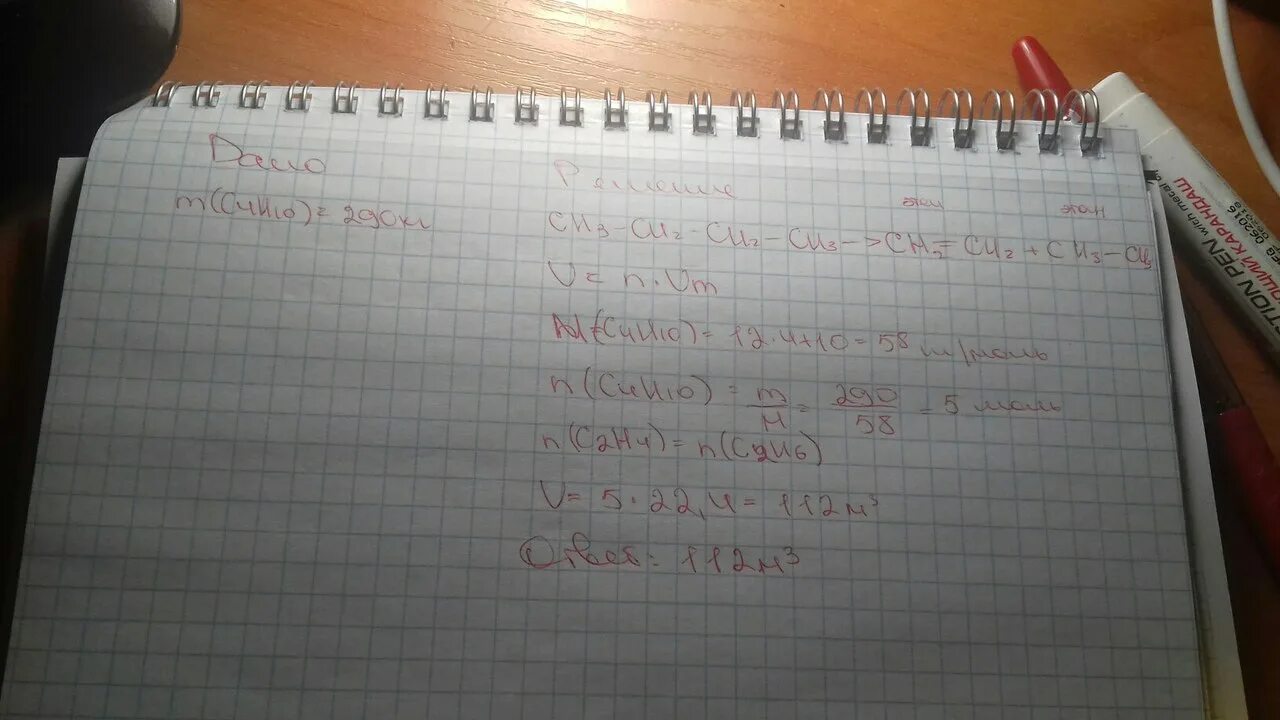 Дано
m(C4H10) = 290кг
Решение
этен этан
CH3-CH2-CH2-CH3->CH2=CH2+CH3-CH3
V= n·Vm
M(C4H10)= 12·4+10= 58 г/моль
n(C4H10) = m/M = 290/58 = 5 моль
n(C2H4)= n(C2H6)
V= 5·22,4= 112м³
Ответ: 112м³
PEN with metal
КАРАНДАШ